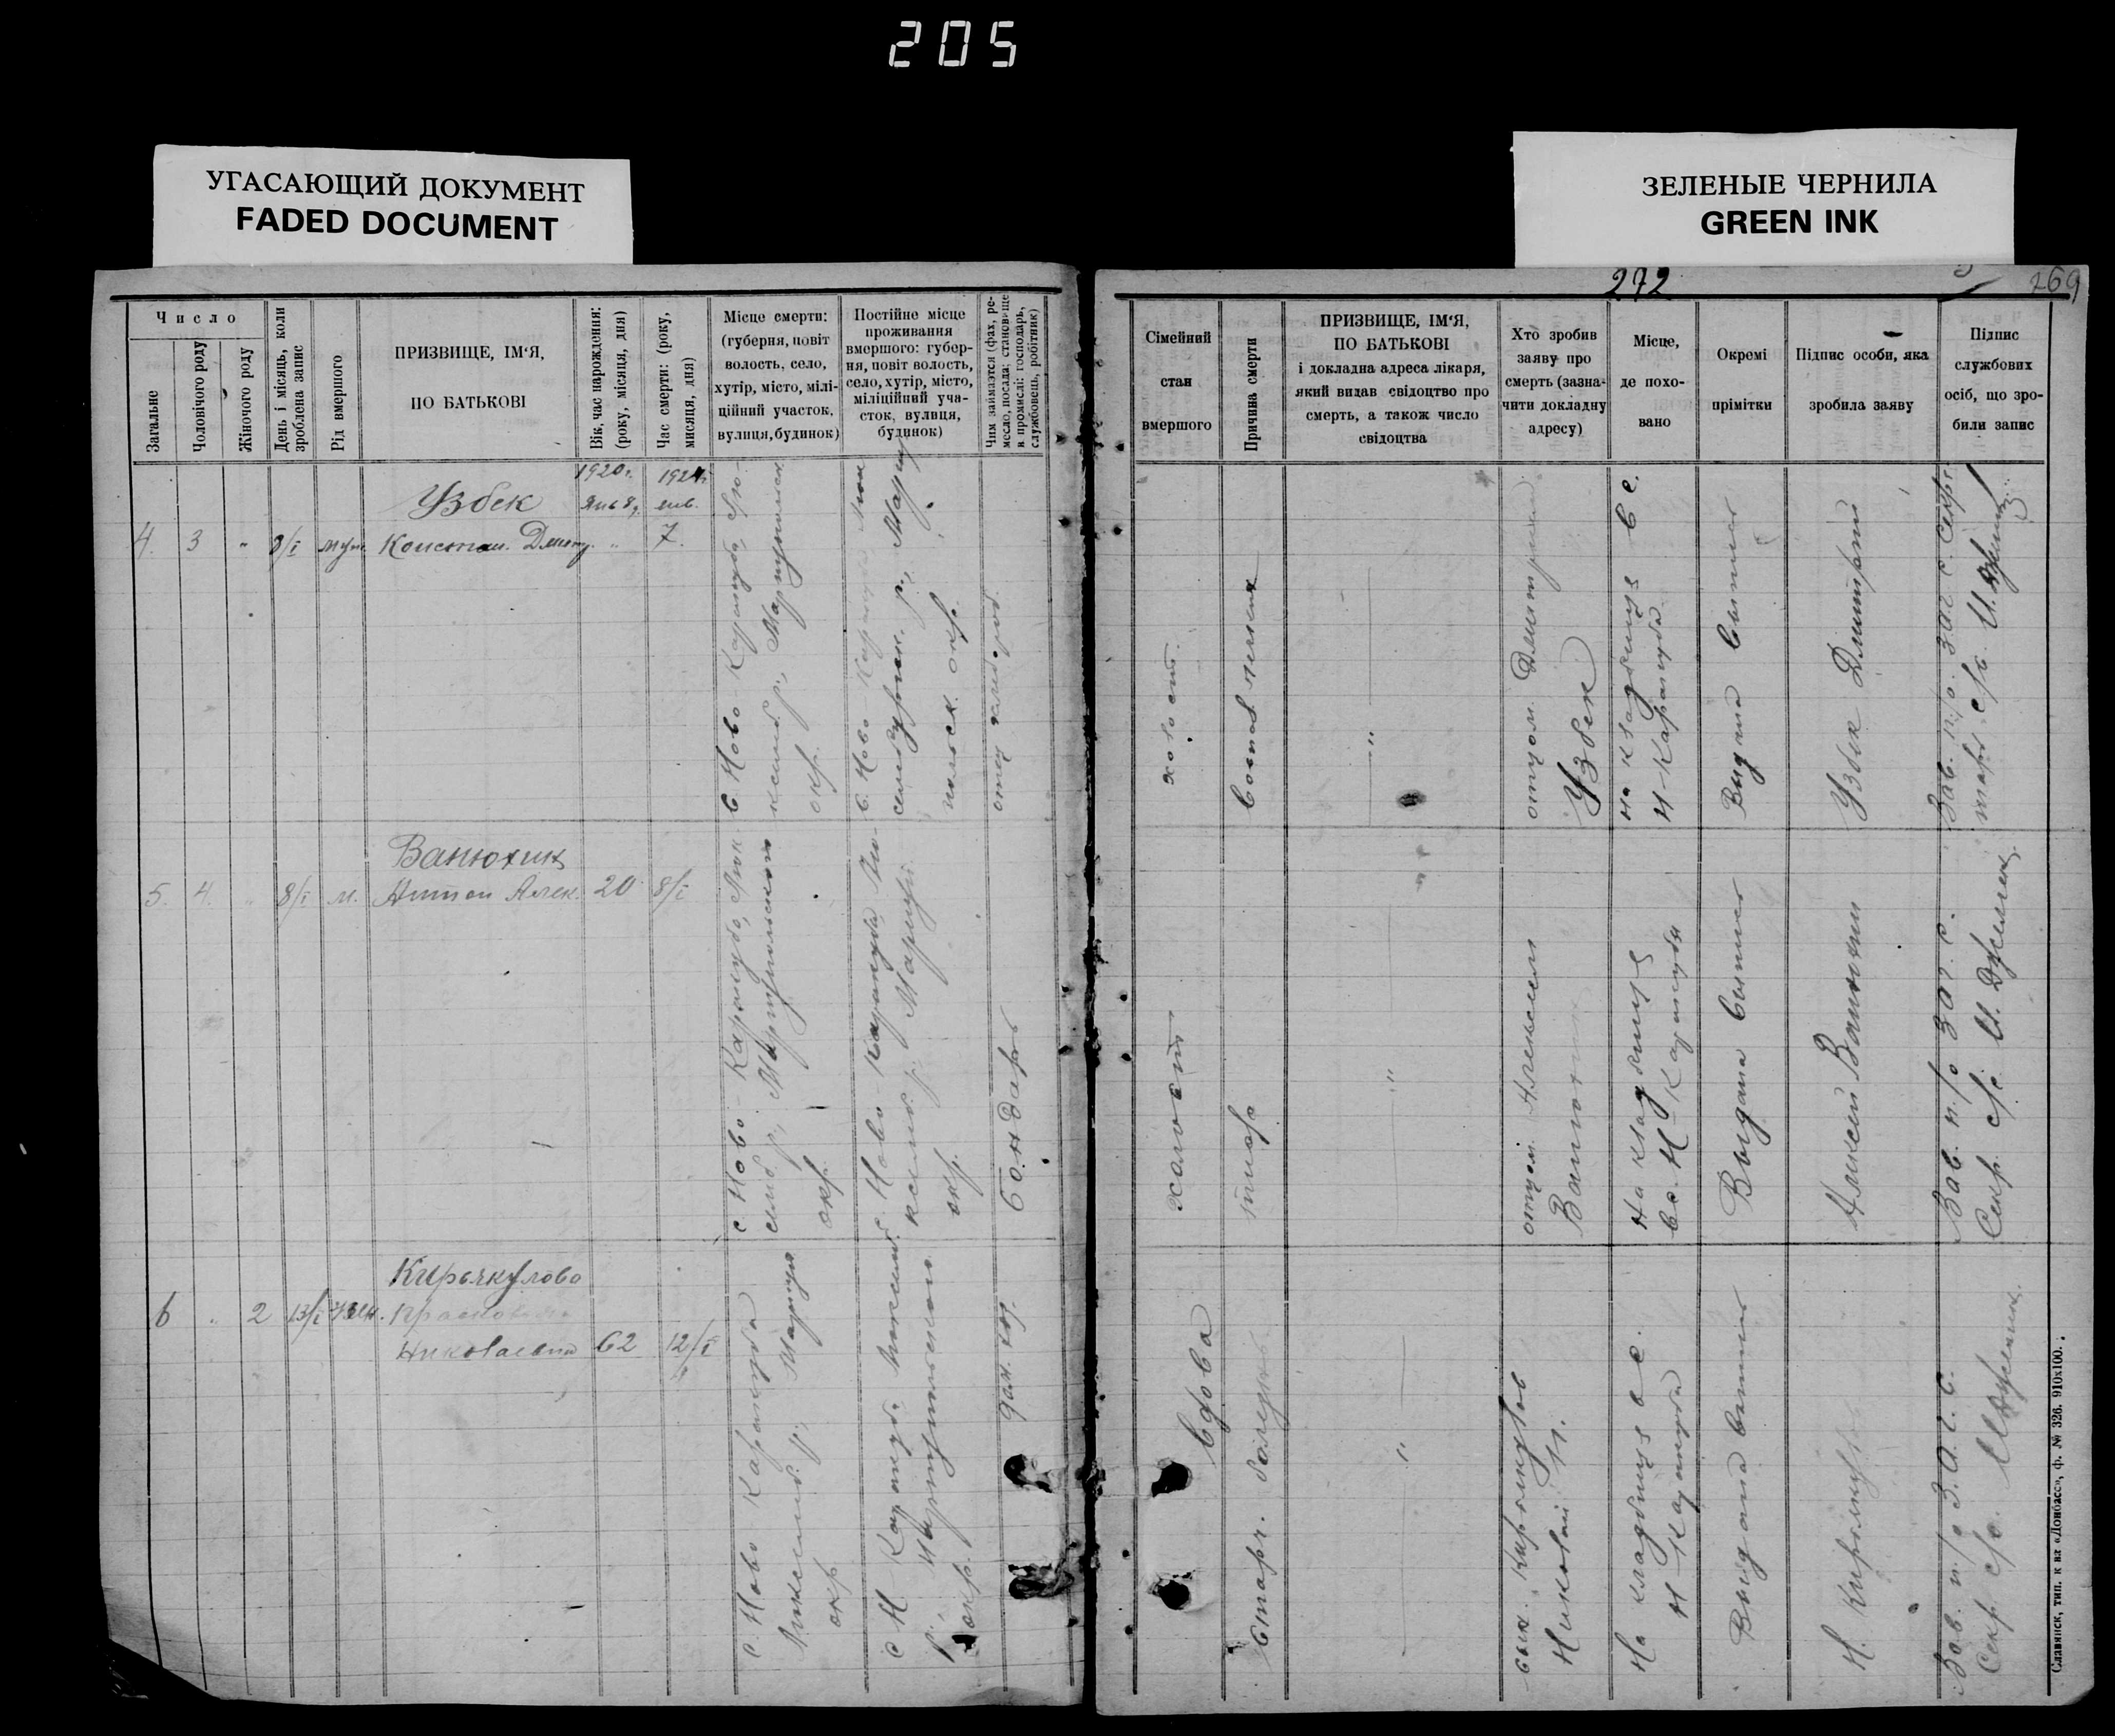 205
УГАСАЮЩИЙ ДОКУМЕНТ
FADED DOCUMENT
ЗЕЛЕНЫЕ ЧЕРНИЛА
GREEN INK
272
269
Число
Загальне
Чоловічого роду
Жіночого роду
День і місяць, коли
зроблена запис
Рід вмершого
ПРИЗВИЩЕ, ІМ‘Я,
ПО БАТЬКОВІ
Вік, час народження:
(року, місяця, дня)
Час смерти: (року,
мисяця, дня)
Місце смерти:
(губерня, повіт
волость, село,
хутір, місто, мілі-
ційний участок,
вулиця, будинок)
Постійне місце
проживання
вмершого: губер-
ня, повіт волость,
село, хутір, місто,
міліційний уча-
сток, вулиця,
будинок)
Чим займаэтся (фах, ре-
месло, посада: становище
в промислі: господарь,
службовець, робітник)
Сімейний
стан
вмершого
Причина смерти
ПРИЗВИЩЕ, ІМ‘Я,
ПО БАТЬКОВІ
і докладна адреса лікаря,
який видав свідоцтво про
смерть, а також число
свідоцтва
Хто зробив
заяву про
смерть (зазна-
чити докладну
адресу)
Місце,
де похо-
вано
Окремі
прімітки
Підпис особи, яка
зробила заяву
Підпис
службових
осіб, що зро-
били запис
4. 3 " 8/I муж.
Узбек
Констан. Дмитр.
1920 г.
янв 8,
янв.
7.
с. Ново-Каракуба
Мариупольск
окр.
с. Ново-Каракуба
р., Мариу
польск. окр.
отец
холост.
отцом Дмитрием
Узбек
на кладбище в с.
Н-Каракуба
Выдана выпись
Узбек Дмитрий
Зав. п/о. ЗАГС. Секр.
5. 4. " 8/I м.
Ванюхин
Антон Алек.
20
8/I
с. Ново-Каракуба,
р., Мариупольской
окр.
с. Ново-Каракуба
р. Мариуп
окр.
бондарь
холост
тиф
отцом Алексеем
Ванюхин
На кладбище
в с. Н-Каракуба
Выдана выпись
Алексей Ванюхин
Зав. п/о ЗАГС.
Секр. с/с.
6 " 2 13/I жен.
Кирьякулова
Николаевна
62
12/I
с. Ново Каракуба
р., Мариуп
окр
с Н Каракуба
р., Мариупольского
окр.
дом. хоз.
вдова
старч. болезнь
сын. Кирьякулов
Николай Н.
На кладбище в с.
Н-Каракуба
Выдана выпись
Н. Кирьякул
Зав. п/о З.А.Г.С.
Секр с/с.
Славянск, тип. к вд «Донбасс», ф. № 326. 910х100.